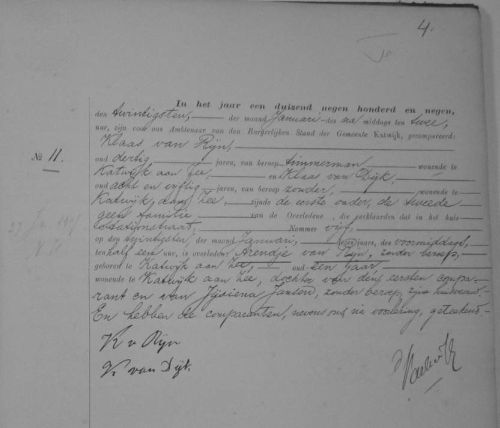 4.
In het jaar een duizend negen honderd en negen,
den twintigsten, der maand Januari des na middags ten twee,
ure, zijn voor ons Ambtenaar van den Burgerlijken Stand der Gemeente Katwijk, gecompareerd:
No 11.
Klaas van Rijn,
oud dertig, jaren, van beroep timmerman, wonende te
Katwijk aan Zee, en Klaas van Dijk,
oud acht en vijftig, jaren, van beroep zonder, wonende te
Katwijk aan Zee, zijnde de eerste vader, de tweede
geen familie van de Overledene, die verklaarden dat in het huis
Nummer vijf,
op den twintigsten, der maand Januari, dezes jaars, des voormiddags,
ten half een ure, is overleden Arendje van Rijn, zonder beroep,
geboren te Katwijk aan Zee, oud een jaar,
wonende te Katwijk aan Zee, dochter van den eersten compa-
rant en van Jansen, zonder beroep, zijn huisvrouw.
En hebben de comparanten, nevens ons na voorlezing, geteekend.
K v Rijn
K. van Dijk.